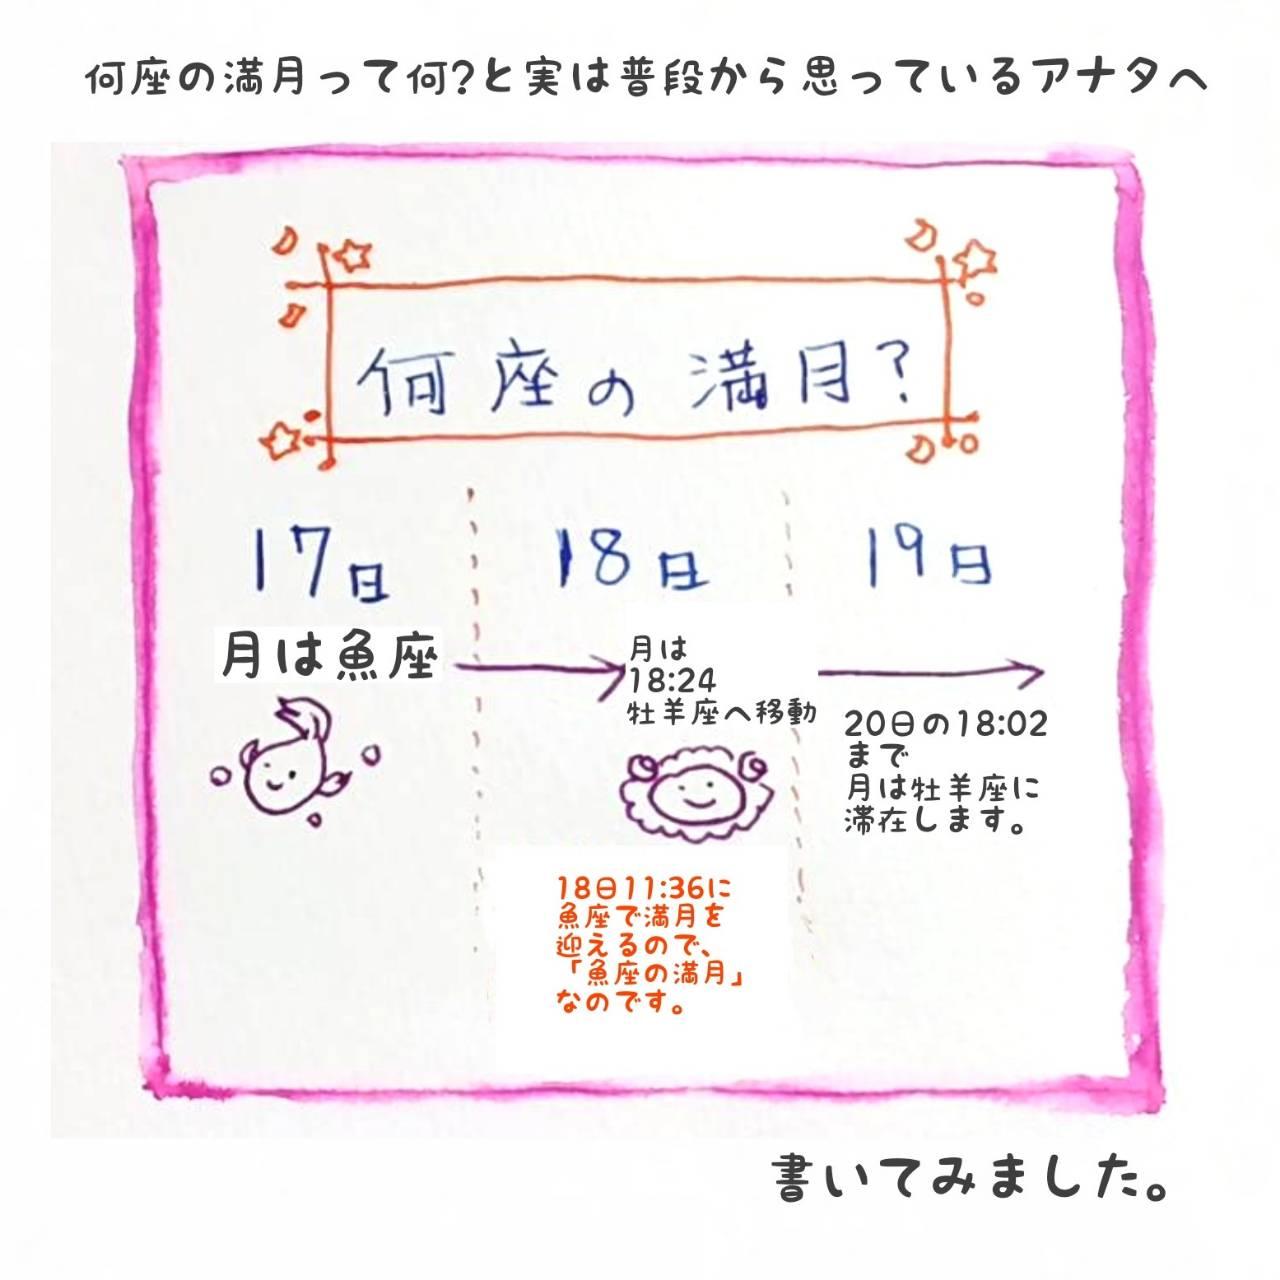 何座の満月って何?と実は普段から思っているアナタへ
何座の満月?
17日
月は魚座
18日
月は
18:24
牡羊座へ移動
18日11:36に
魚座で満月を
迎えるので、
「魚座の満月」
なのです。
19日
20日の18:02
まで
月は牡羊座に
滞在します。
書いてみました。